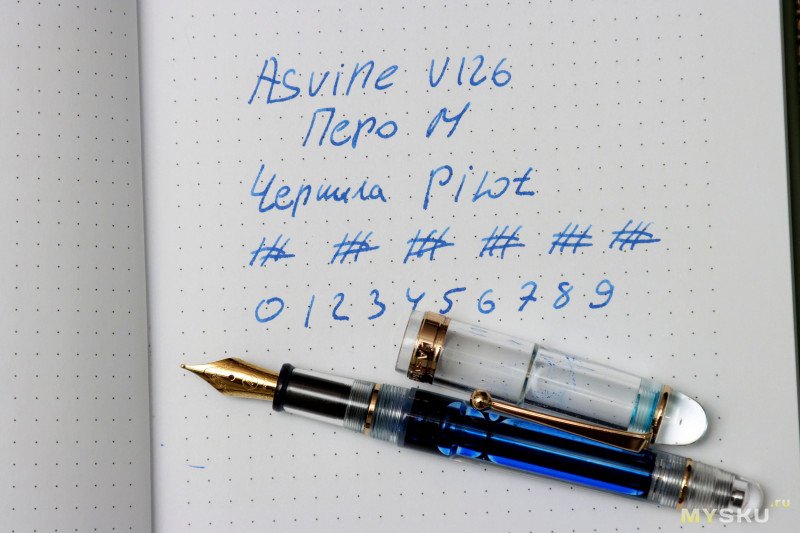 Asvine V126
Перо M
Чернила Pilot
0 1 2 3 4 5 6 7 8 9
MYSKU.ru